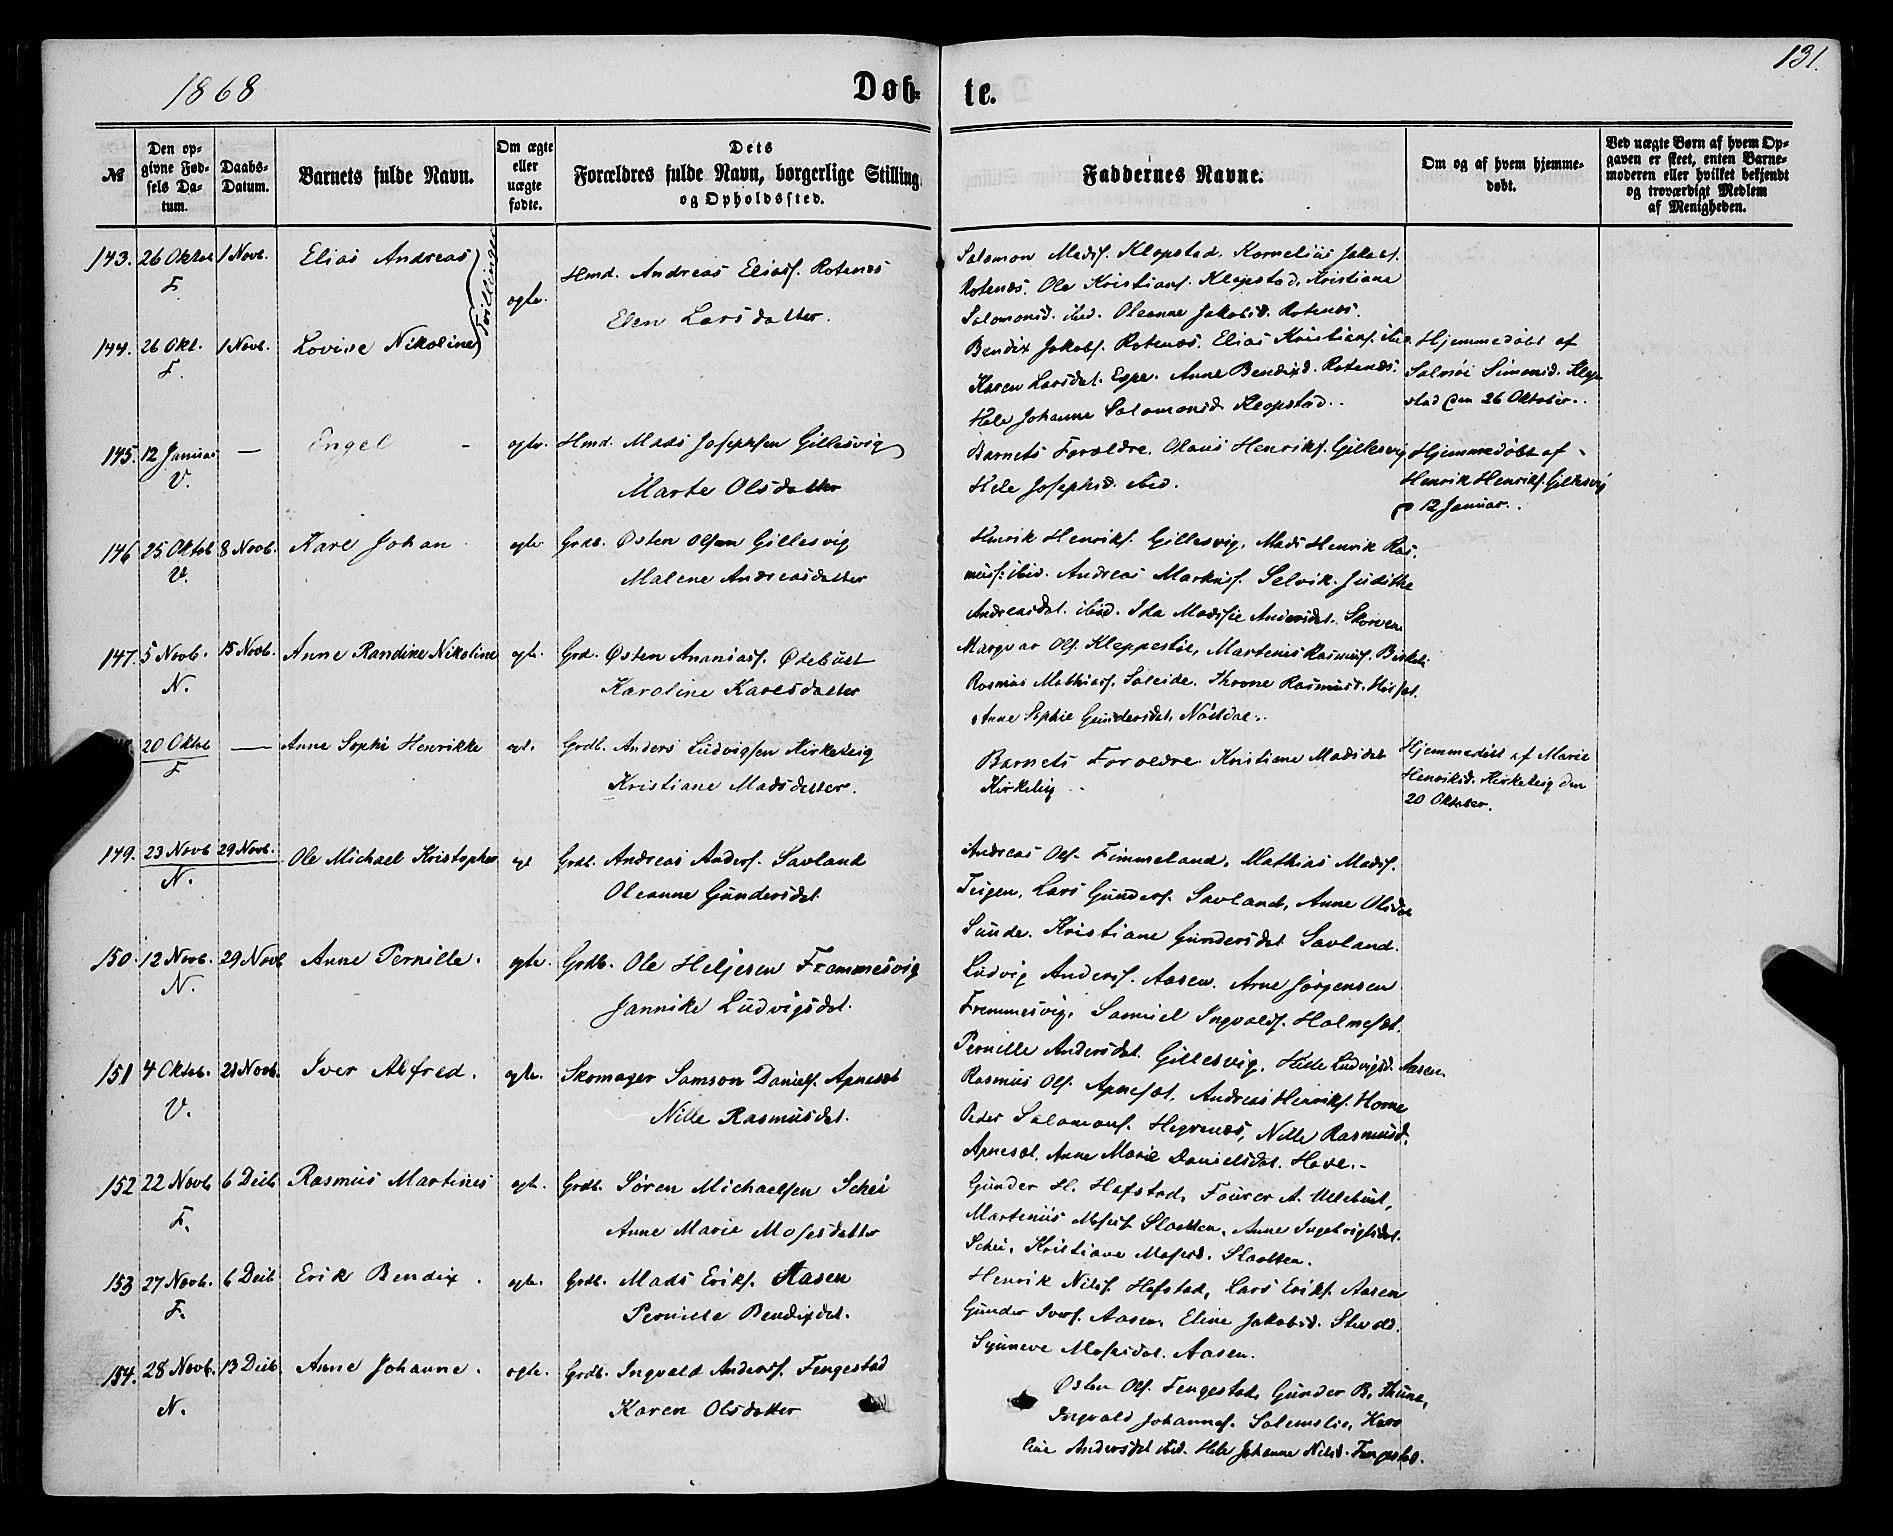 1868
Døb-
te.
131.
№
Den op-
givne Fød-
sels Da-
tum.
Daabs-
Datum.
Barnets fulde Navn.
Om ægte
eller
uægte
fødte.
Dets
Forældres fulde Navn, borgerlige Stilling
og Opholdssted.
Faddernes Navne.
Om og af hvem hjemme-
døbt.
Ved uægte Børn af hvem Op-
gaven er skeet, enten Barne-
moderen eller hvilket bekjendt
og troværdigt Medlem
af Menigheden.
143. 26 Oktob 1 Novb. Elias Andreas Tvillinger
F.
ægte. Hmd. Andreas Eliass. Rotenæs
Elen Larsdatter.
Salomon Madss. Klopstad, Kornelius Jakobs.
Rotenæs. Ole Kristians. Klopstad, Kristiane
Salomonsd. ibid. Oleanne Jakobsd. Rotenæs.
144. 26 Okt. 1 Novb. Lovise Nikoline
F.
Bendix Jakobs. Rotenæs. Elias Kristians. ibid.
Karen Larsdat. Espe. Anne Bendixd. Rotenæs.
Hele Johanne Salomonsd Klopstad.
Hjemmedøbt af
Salmøi Simonsd. Klop-
stad den 26 Oktober.
145. 12 Januar — Engel - ægte. Hmd. Mads Josephsen Gillesvig
V.
Marte Olsdatter
Barnets Forældre. Olaus Henriks. Gillesvig
Hele Josephsd. ibid.
Hjemmedøbt af
Henrik Henriks. Gillesvig
12 Januar.
146 25 Oktob 8 Novb. Karl Johan ægte. Grdb. Østen Olsen Gillesvig
V.
Malene Andreasdatter
Henrik Henriks. Gillesvig, Mads Henrik Ras-
muss. ibid. Andreas Markuss. Selvik. Judithe
Andreasdat. ibid. Ida Madsie Andersdat. Skorven
147. 5 Novb. 15 Novb. Anne Randine Nikoline ægt. Grd. Østen Ananiass. Ytebust
N.
Karoline Karlsdatter
Margvar Ols. Kleppestøl, Martenus Rasmuss.
Rasmus Mathiass. Soleide. Throne Rasmusd.
Anne Sophie Gundersdat. Nøstdal.
20 Oktob — Anne Sophi Henrikke ægt. Grdb. Anders Ludvigsen Kirketeig
F
Kristiane Madsdatter.
Barnets Forældre Kristiane Madsdat
Kirketeig
Hjemmedøbt af Marie
Henriksd. Kirketeig den
20 Oktober.
149. 23 Novb 29 Novb. Ole Michael Kristopher ægt Grdb. Andreas Anders. Savland
N.
Oleanne Gundersdat.
Andreas Ols. Fimmeland, Mathias Madss.
Teigen, Lars Gunders. Savland, Anne Olsdat
Sunde. Kristiane Gundersdat. Savland.
150. 12 Novb. 29 Novb Anne Pernille. ægte. Grdb. Ole Heljesen Fremmesvig
N.
Jannike Ludvigsdat.
Ludvig Anders. Aasen. Arne Jørgensen
Fremmesvig, Samuel Ingvalds. Holmesæt.
Pernille Andersdat. Gillesvig, Hele Ludvigsd. Aasen.
151 4 Oktob. 21 Novb. Iver Alfred. ægte. Skomager Samson Daniels. Apnesæt
V.
Nille Rasmusdat.
Rasmus Ols. Apnesæt, Andreas Henriks. Horne
Peder Salomons. Hegrenæs, Nille Rasmusd.
Apnesæt, Anne Marie Danielsdat. Hove.
152 22 Novb 6 Decb Rasmus Martines ægt. Grdb. Søren Michaelsen Schei
F.
Anne Marie Mosesdatter
Gunder H. Hafstad, A. Ullebust,
Martenus Moses. Slaatten, Anne
Schei, Kristiane Mosesd. Slaatten.
153 27 Novb. 6 Decb Erik Bendix. ægte. Grdb. Mads Eriks. Aasen
F.
Pernille Bendixdat.
Henrik Nilss. Hafstad, Lars Eriks. Aasen
Gunder Ivers. Aasen, Eline Jakobsd.
Synneve Mosesdat. Aasen.
154. 28 Novb. 13 Decb. Anne Johanne. ægte. Grdb. Ingvald Anders. Fengestad
N.
Karen Olsdatter
Østen Ols. Fengestad, Gunder B. Thune,
Ingvald Johanness. Solemslie, Karo
line Andersdat ibid. Hele Johanne Nilsd. Fengestad.